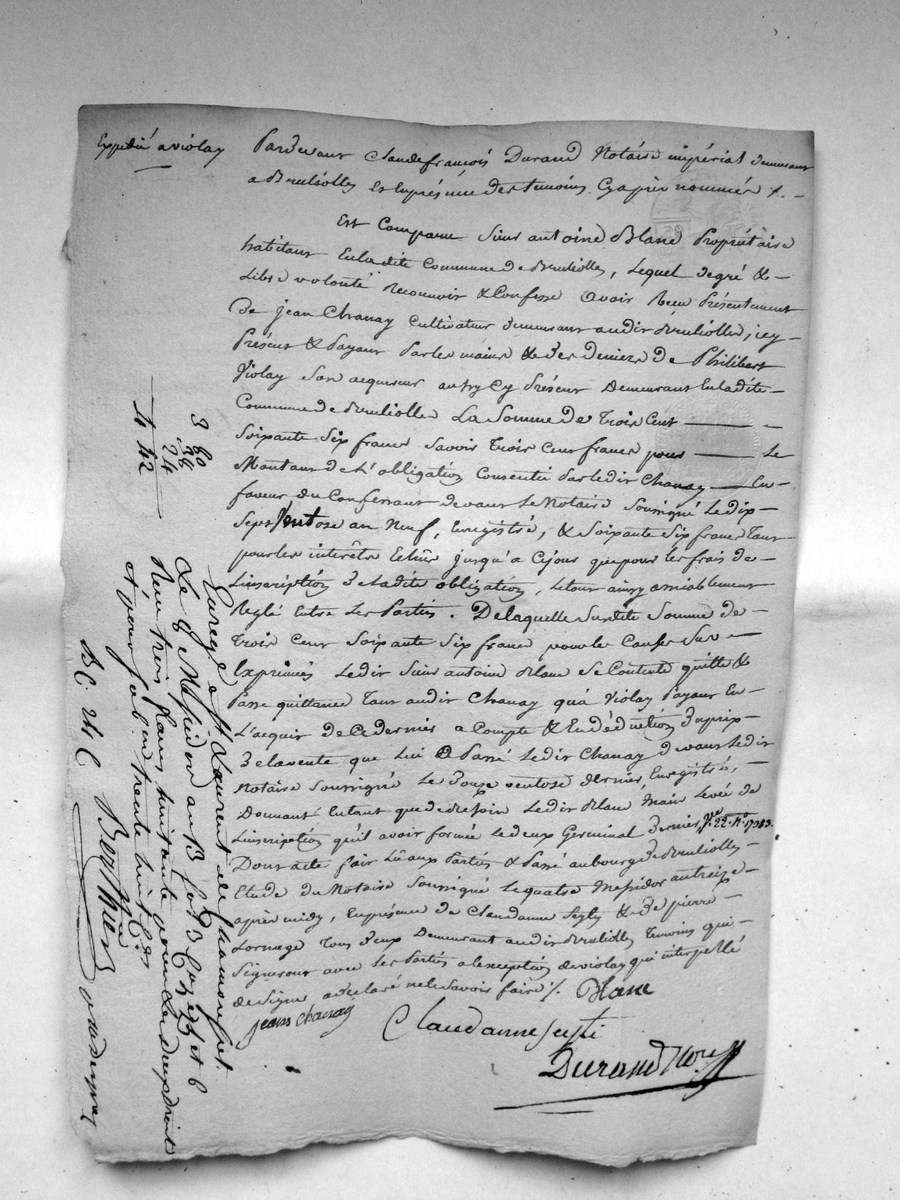 Expédié a violay
Pardevant Claude françois Durand Notaire impérial demeurant
a Brulliolles et En présence des temoins Cy aprés nommés
Est Comparu Sieur antoine Blanc Propriétaire
habitant En la dite Commune de Brulliolles, Lequel de gré &
Libre volonté Reconnoit & Confesse avoir Reçu Présentement
de jean Chanay Cultivateur demeurant audit Brulliolles, icy
Présent & Payant Par les mains & des deniers de Philibert
Violay Son acquereur aussy Cy Présent Demeurant En la dite
Commune de Brulliolles La Somme de Trois Cent
Soixante Six francs Savoir Trois Cent francs pour Le
Montant de L'obligation Consentie Par ledit Chanay En
faveur du Confessant devant Le Notaire Soussigné Le dix
Sept Ventose an Neuf, Enregistré, & Soixante Six francs Tant
pour les interêts Echus jusqu'a Ce jour que pour les frais de
L'inscription de la dite obligation, Le tout ainsy amiablement
Reglé Entre Les Parties. De laquelle Susdite Somme de
Trois Cent Soixante Six francs pour les Causes Sus
Exprimées Ledit Sieur antoine Blanc Se Contente quitte &
Passe quittance Tant audit Chanay qu'a Violay Payant En
L'acquit de Ce dernier a Compte & En déduction du prix
de la vente que Lui a Passé Ledit Chanay devant Ledit
Notaire Soussigné Le douze ventose dernier, Enregistré,
Donnant En tant que de besoin Ledit Blanc Main Levée de
L'inscription qu'il avoit formée Le deux Germinal dernier, 22. No 1728
Dont acte fait Lû aux Parties & Passé au bourg de Brulliolles
Etude du Notaire Soussigné Le quatre Messidor an treize
aprés midy, En présence de Claudanne & de pierre
Lornage Tous deux Demeurant audit Brulliolles Temoins qui
Signeront avec Les Parties a l'exception de violay qui interpellé
de Signer a declaré ne le Savoir faire /. Blanc
jean Chanay
Claudanne
Durand Nore
3 80
38
24
4 42
Enregé a St Laurent de Chamousset
Le 8 Messidor an 13 fo 3 Cases 5 et 6
Reçu trois francs huitante Centimes pour droit
et pour Subon trente huit Ces
B C. 24 C Berthier